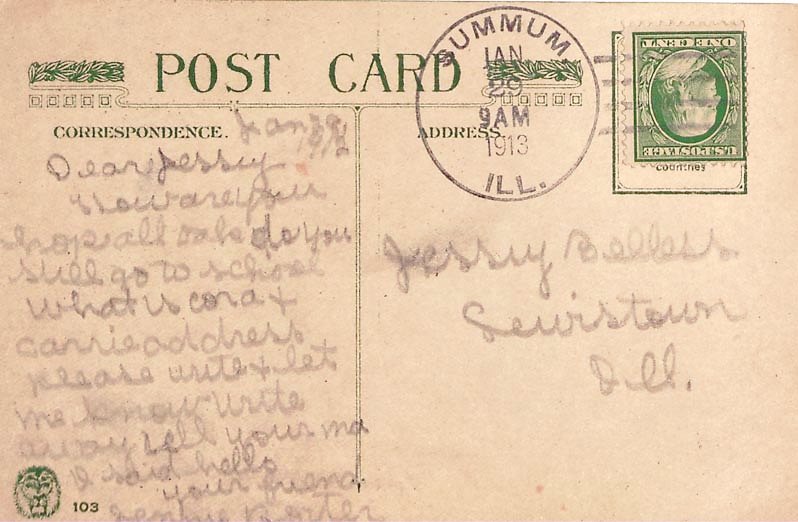 POST CARD
CORRESPONDENCE.
ADDRESS.
SUMMUM
JAN
29
9AM
1913
ILL.
ONE CENT
U.S. POSTAGE
countries
Jan 29
Dear Jessy
How are you
hope all o.k. do you
still go to school
What is cora &
carrie address
please write & let
me know write
away tell your ma
I said hello
your friend
Jessy Belless
Lewistown
Ill.
103